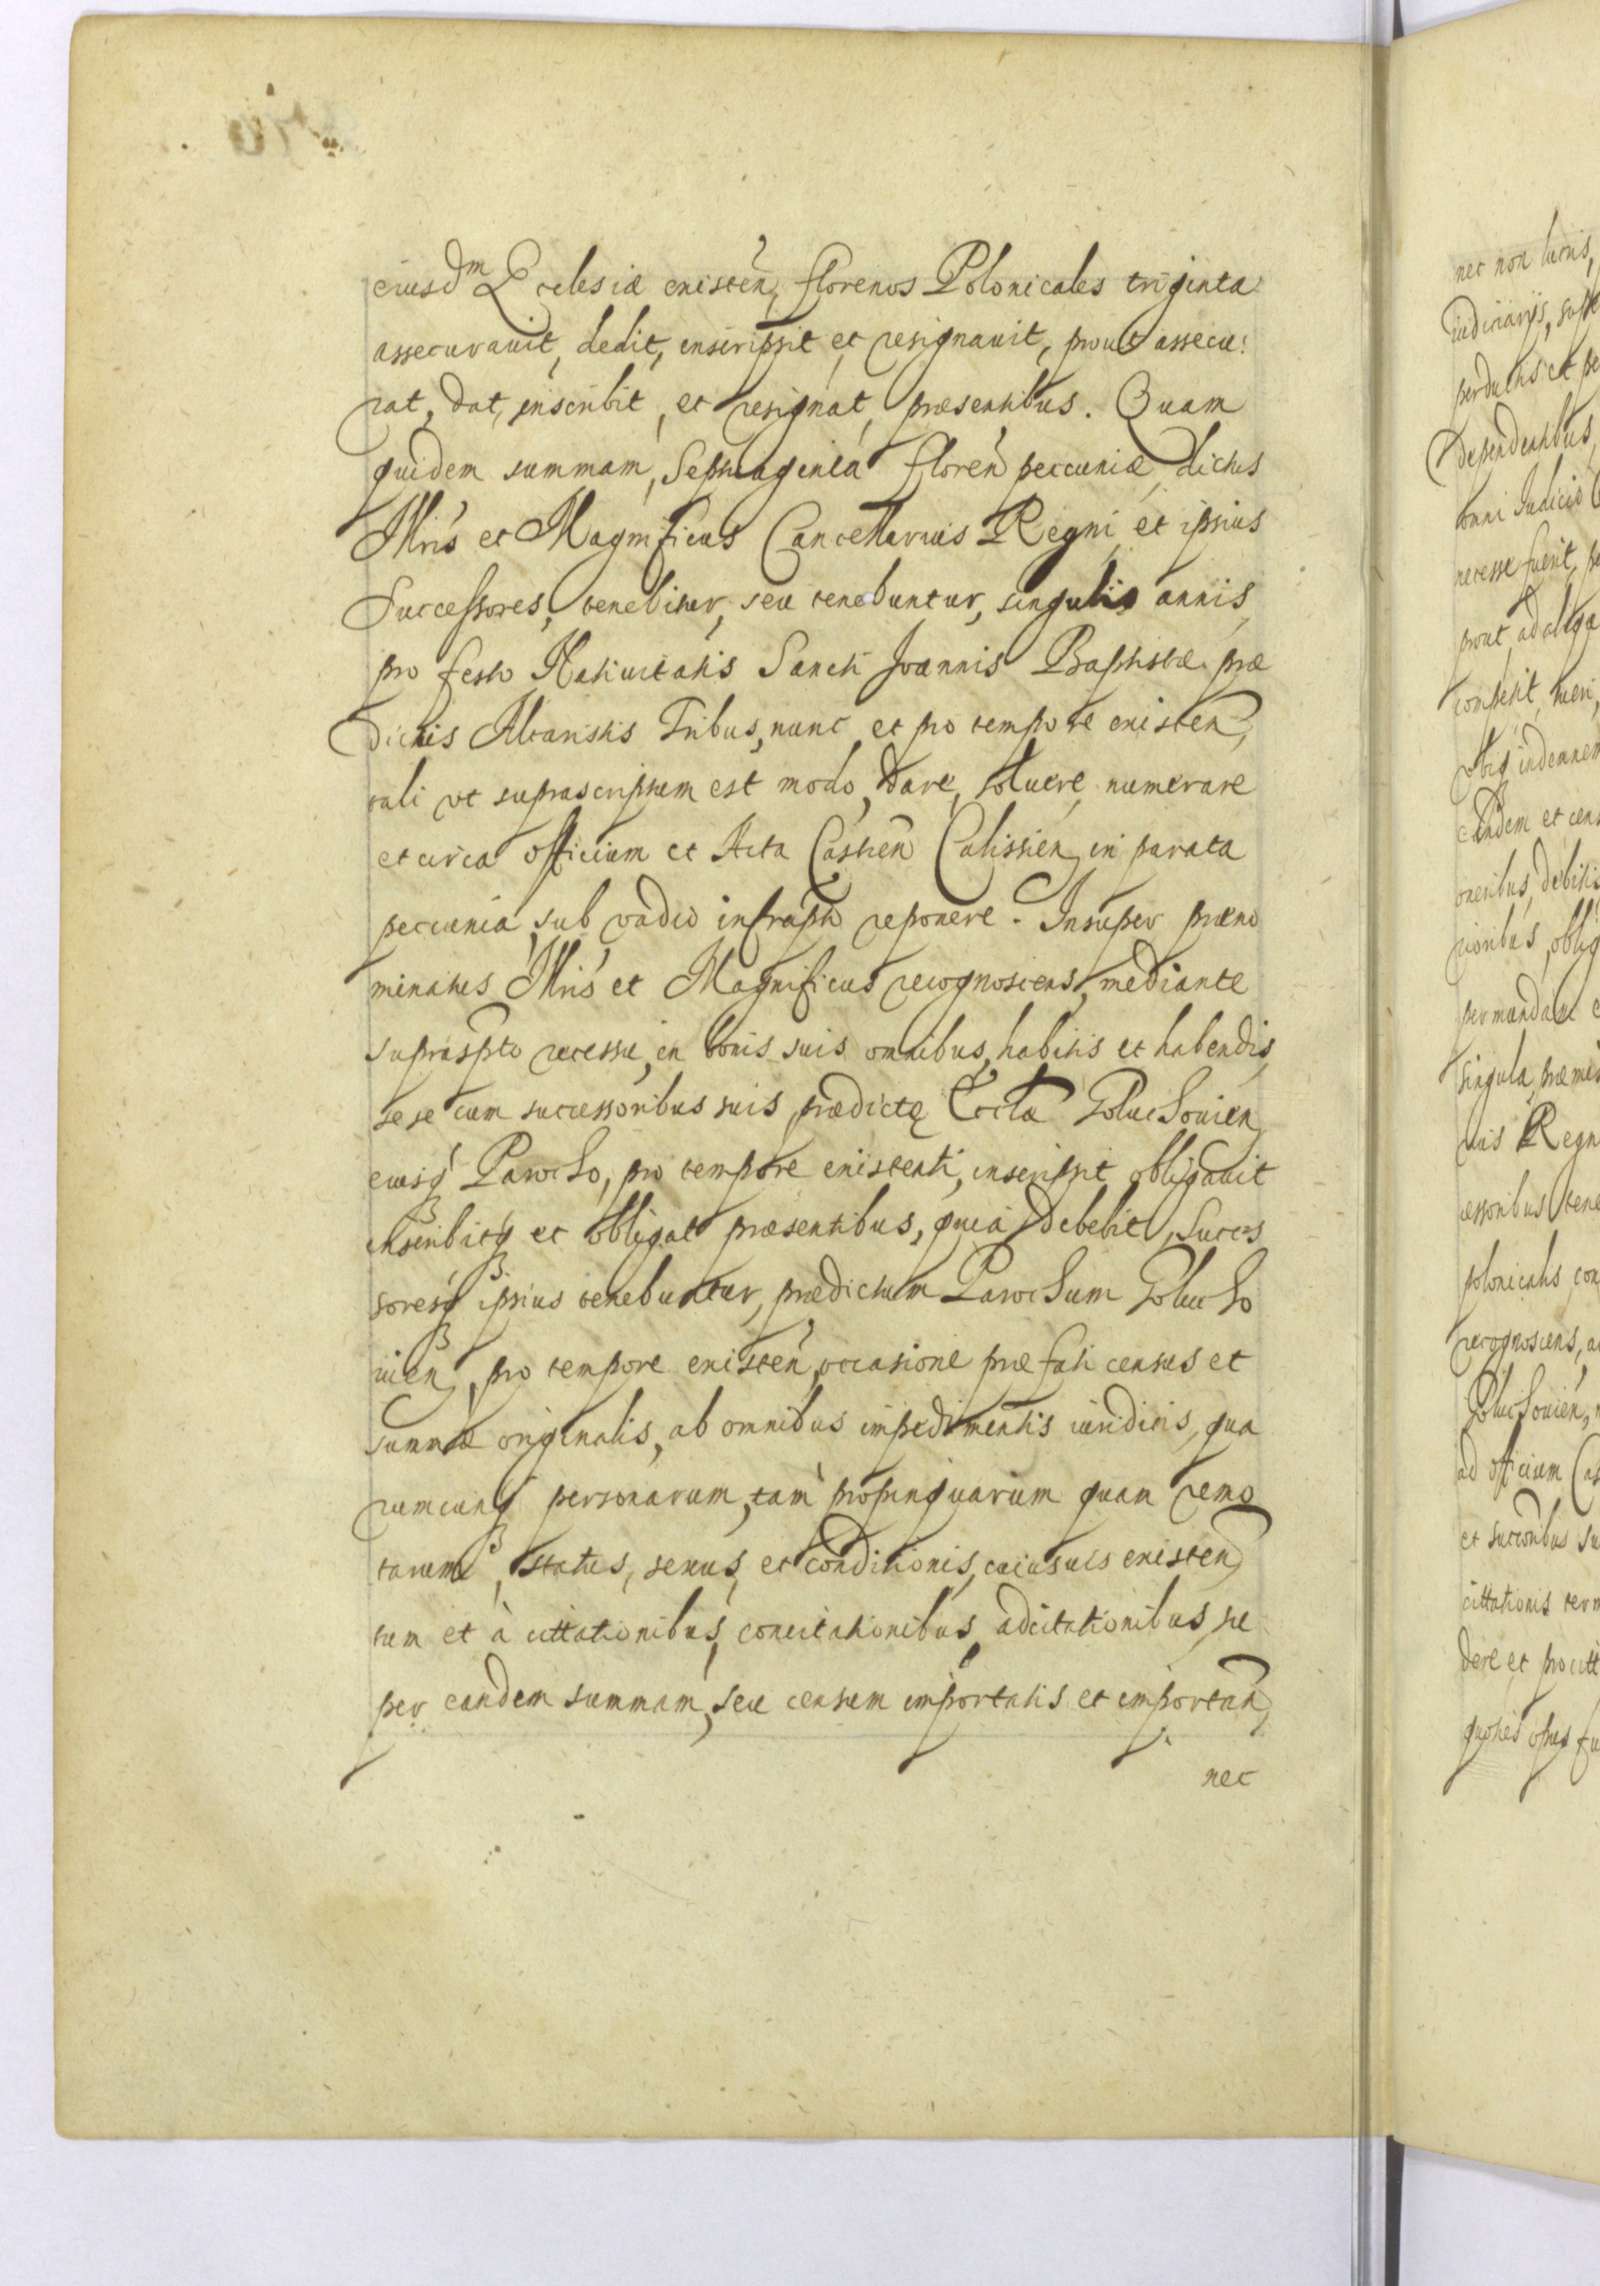 eiusdm Ecclesiæ existen, florenos Polonicales triginta
assecurauit, dedit, inscripsit et resignauit, prout assecu:
rat, dat, inscribit, et resignat, præsentibus. Quam
quidem summam, Septuaginta floren pecuniæ, dictus
Illris et Magnificus Cancellarius Regni, et ipsius
Successores, tenebitur, seu tenebuntur, singulis annis,
pro festo Natiuitatis Sancti Joannis Baptistæ, præ
dictis Altaristis Tribus, nunc, et pro tempore existen,
tali vt suprascriptum est modo, dare, soluere, numerare
et circa officium et Acta Castren Calissien, in parata
peccunia, sub vadio infrapto reponere. Insuper præno
minatus Illris et Magnificus recognoscens, mediante
supraspto recessu, in bonis suis omnibus, habitis et habendis,
se se cum successoribus suis, prædictę Ecclæ Goluchouien,
eiusq Parocho, pro tempore existenti, inscripsit, obligauit
inscribitq et obligat præsentibus, quia debebit, Succes
soresq ipsius tenebuntur, prædictum Parochum Golucho
uien, pro tempore existen, occasione præfati census et
summæ originalis, ab omnibus impedimentis iuridicis, qua
rumcunq personarum, tam propinquarum quam remo
tarum, status, sexus, et conditionis, cuiusuis existen
tium et à cittationibus, concitationibus, adcitationibus, su
per eandem summam, seu censum importatis et importan,
nec
nec non
perdu
dependentibus
omni Iudicio
necesse fuerit
prout
indemnem
eundem et cens
oneribus, debitis
singula, præmis
Regn
polonicalis con
recognoscens, a
Goluchouien,
ad officium Cas
cittationis term
dere et pro citt
quoties opus fu